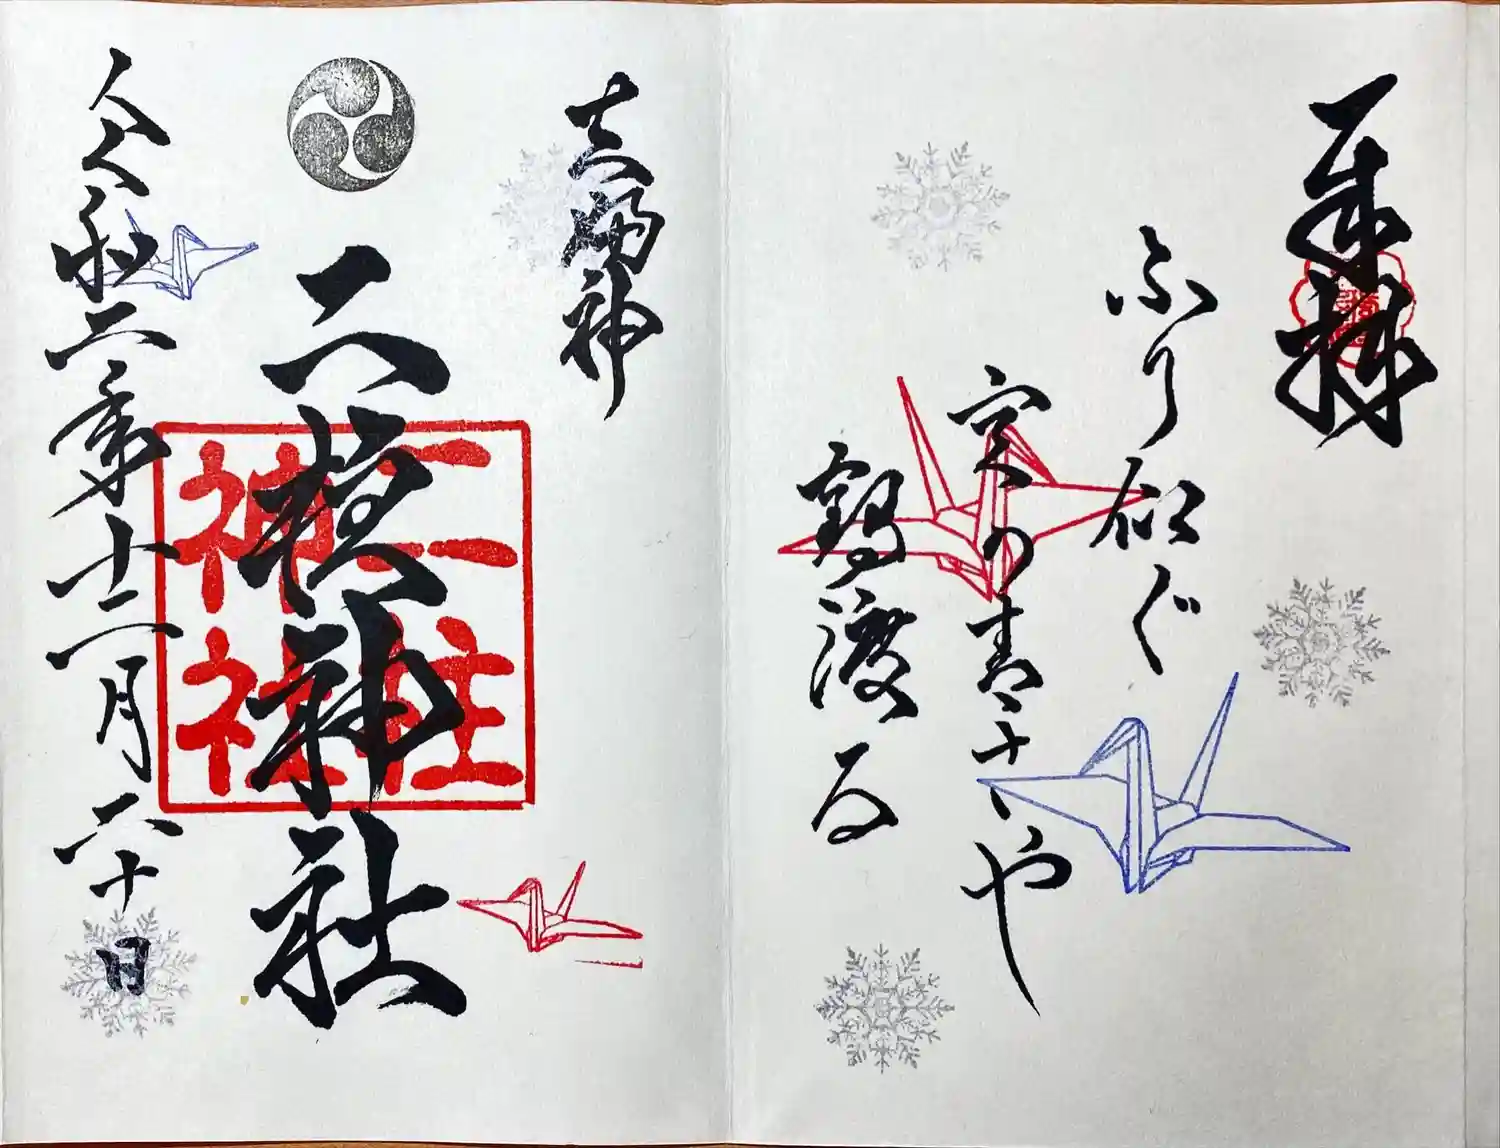 奉拝
ふり仰ぐ
空の青さや
鶴渡る
二柱神社
二柱
神社
令和二年十二月二十日